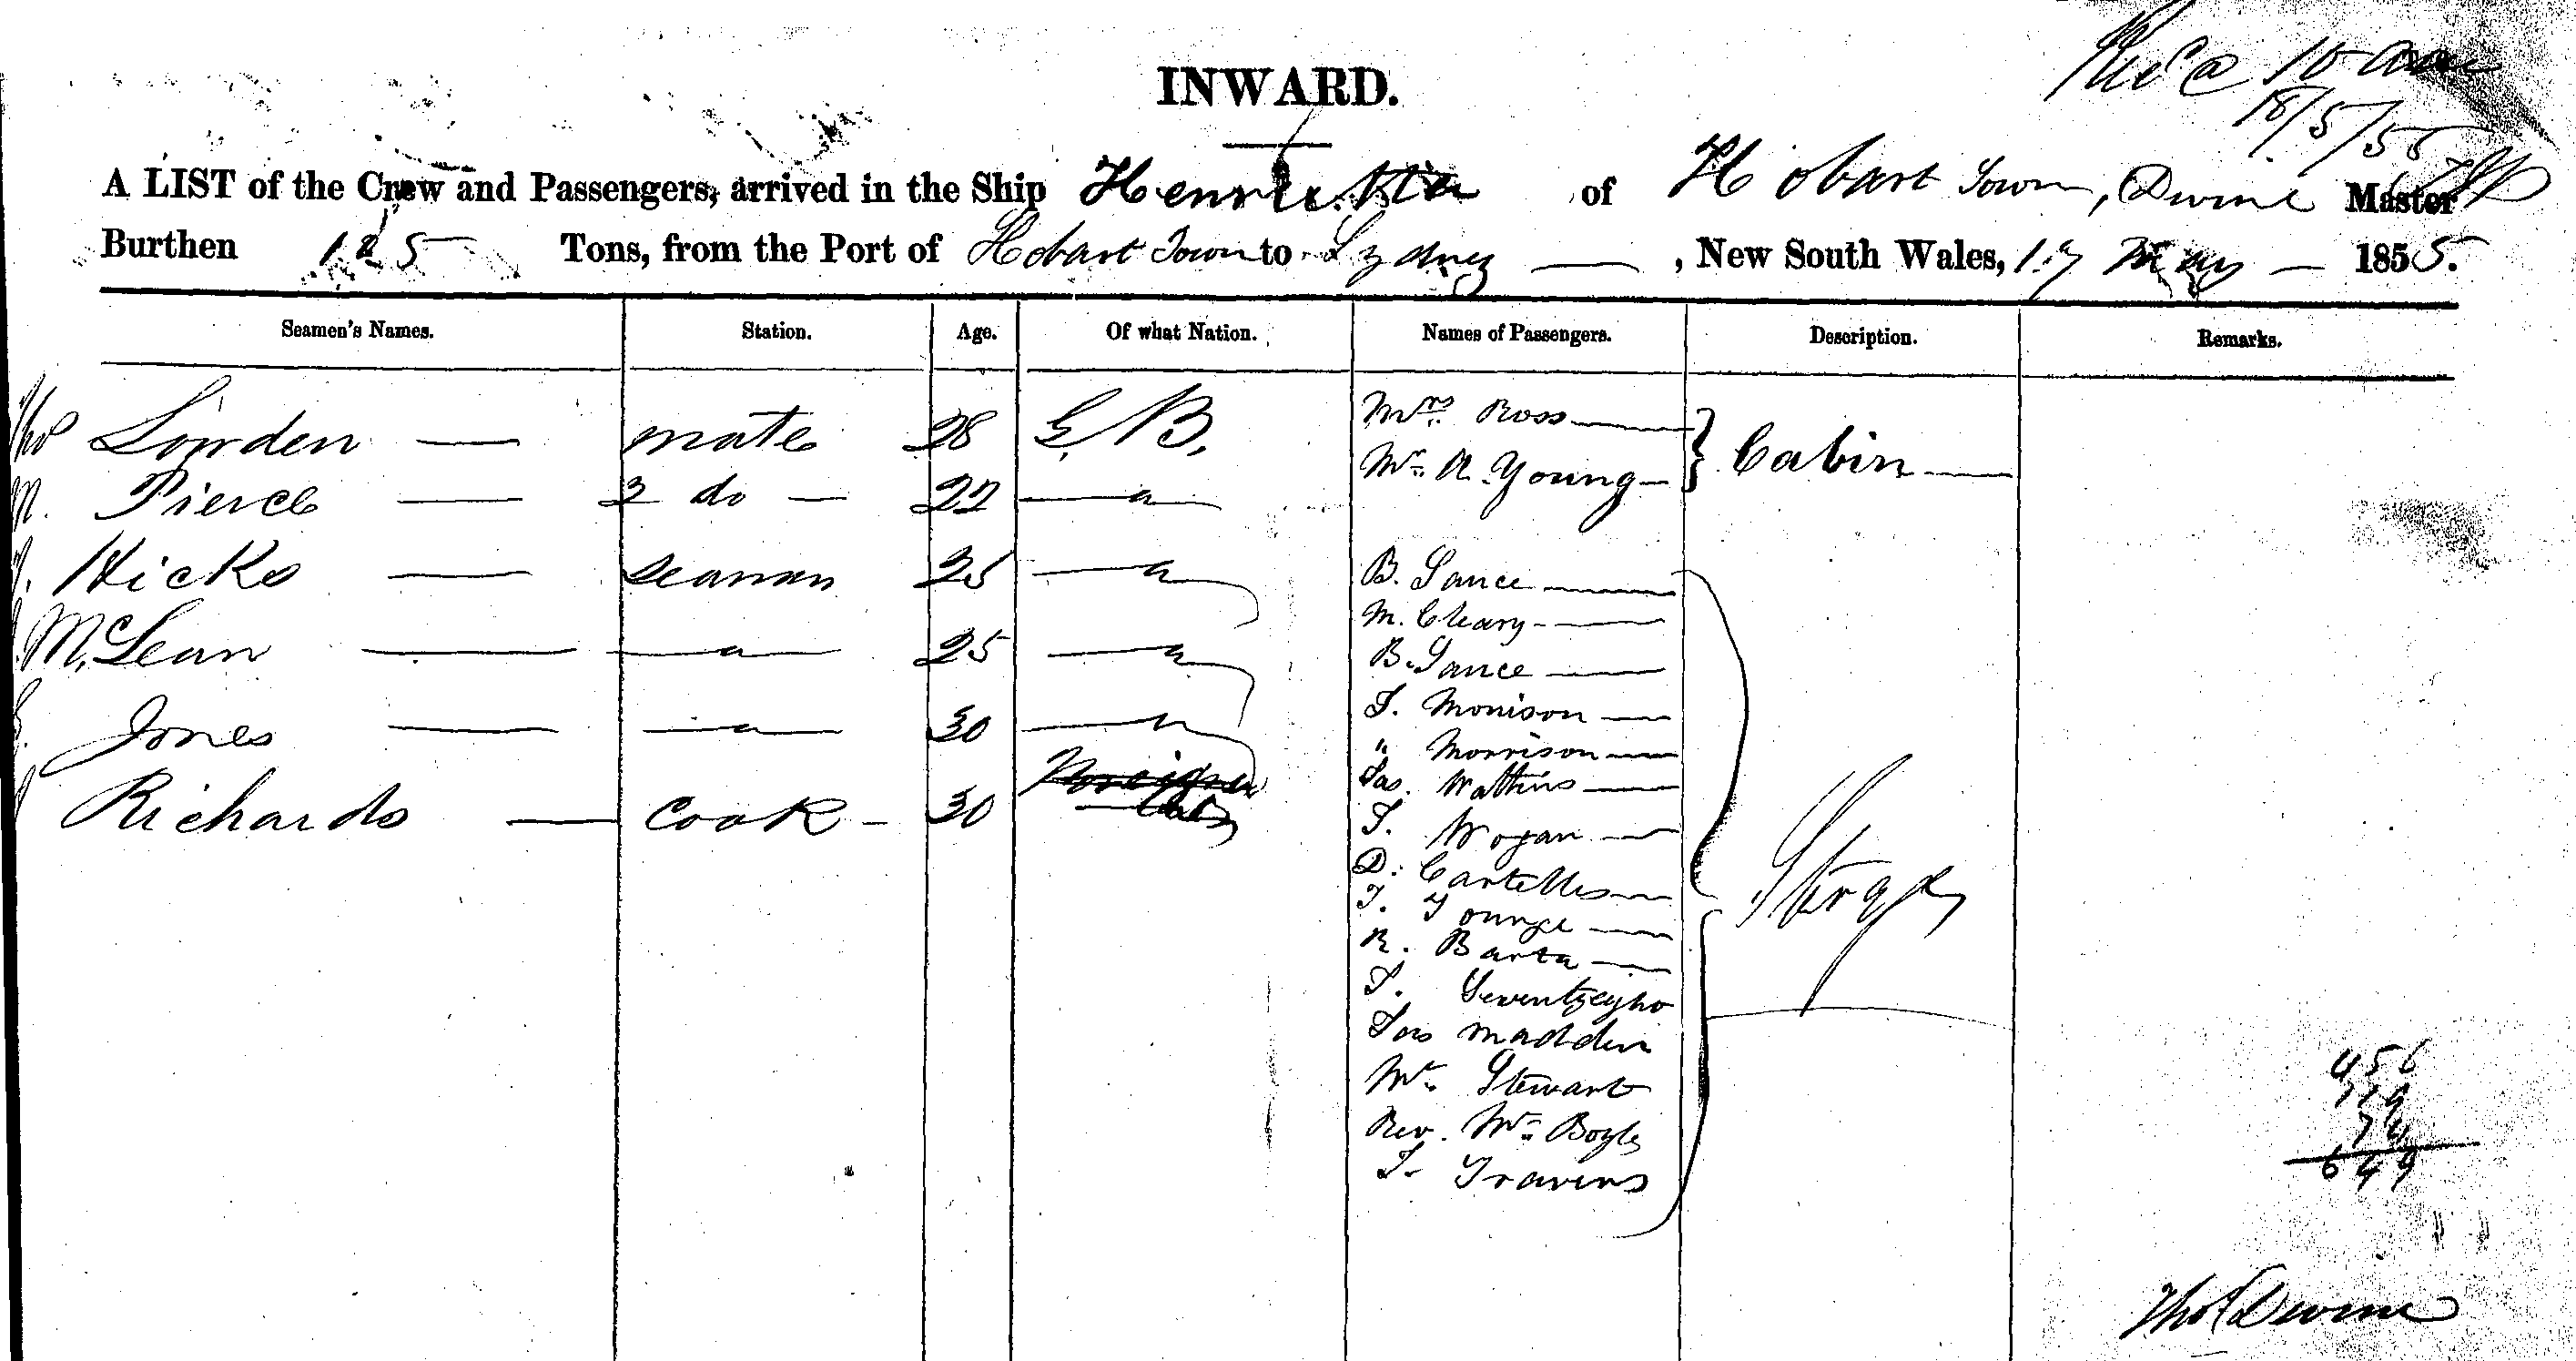 Rec'd @ 10 am
18/5/55
INWARD.
A LIST of the Crew and Passengers, arrived in the Ship Henrietta of Hobart Town, Devine Master
Burthen 125 Tons, from the Port of Hobart Town to Sydney , New South Wales, 17 May 1855.
Seamen's Names. Station. Age. Of what Nation. Names of Passengers. Description. Remarks.
Thos Lowden mate 28 G.B. Mrs Ross
Mr A. Young Cabin
M. Pierce 2 do 22 "
Hicks seaman 25 " B. Lance
M. Cleary
McLean " 25 " B. Lance
Jones " 30 " T. Morrison
" Morrison
Richards Cook 30 Foreigner Jas. Watkins
T. Wogan
D. Cartelles
T. Younge
R. Barta
Steerage
Jas Madden
Mr. Stewart
Rev. Mr. Boyle
T. Travers
456
119
74
649
Thos Devine